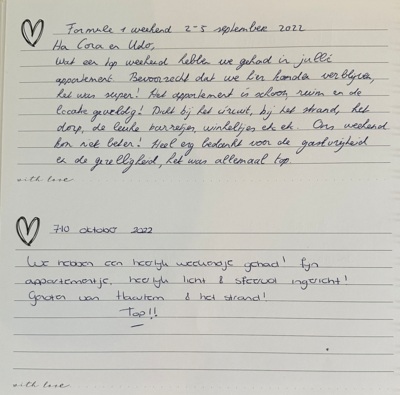 Formule 1 weekend 2-5 september 2022
Ha Cora en Udo,
Wat een top weekend hebben we gehad in jullie
appartement. Bevoorrecht dat we hier konden verblijven,
het was super! Het appartement is schoon, ruim en de
locatie geweldig! Dicht bij het circuit, bij het strand, het
dorp, de leuke barretjes, winkeltjes etc etc. Ons weekend
kon niet beter! Heel erg bedankt voor de gastvrijheid
en de gezelligheid, het was allemaal top.
with love
7-10 oktober 2022
We hebben een heerlijk weekendje gehad! Fijn
appartementje, heerlijk licht & sfeervol ingericht!
Genoten van Haarlem & het strand!
Top!!
with love